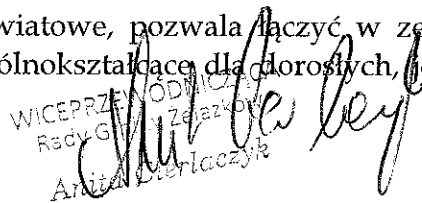 wiatowe, pozwala łączyć w ze
ólnokształcące dla dorosłych,
WICEPRZEWODNICZĄCA
Rady Gminy Żelazków
Anita Gierlaczyk